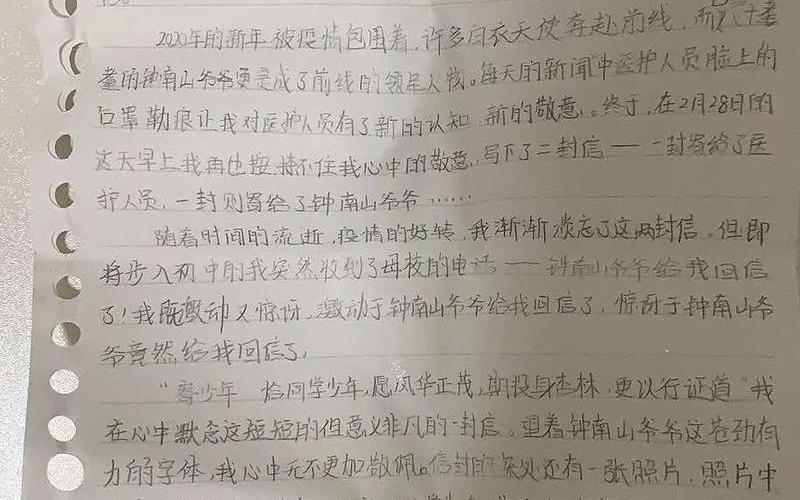 2020年的新年被疫情包围着，许多白衣天使奔赴前线，而八十多
的钟南山爷爷更是成了前线的领军人物。每天的新闻中医护人员脸上的
口罩勒痕让我对医护人员有了新的认知，新的敬意。终于，在2月28日的
这天早上我再也按捺不住我心中的敬意，写下了二封信——一封寄给了医
护人员，一封则寄给了钟南山爷爷……
随着时间的流逝，疫情的好转，我渐渐淡忘了这两封信。但即
将步入初中的我突然收到了母校的电话——钟南山爷爷给我回信
了！我既激动又惊讶，激动于钟南山爷爷给我回信了，惊讶于钟南山爷
爷竟然给我回信了。
“少年 恰同学少年，愿风华正茂，期投身杏林，更以行证道”我
在心中默念这短短的但意义非凡的一封信。望着钟南山爷爷这苍劲有
力的字体，我心中无不更加敬佩。信封的深处还有一张照片，照片中